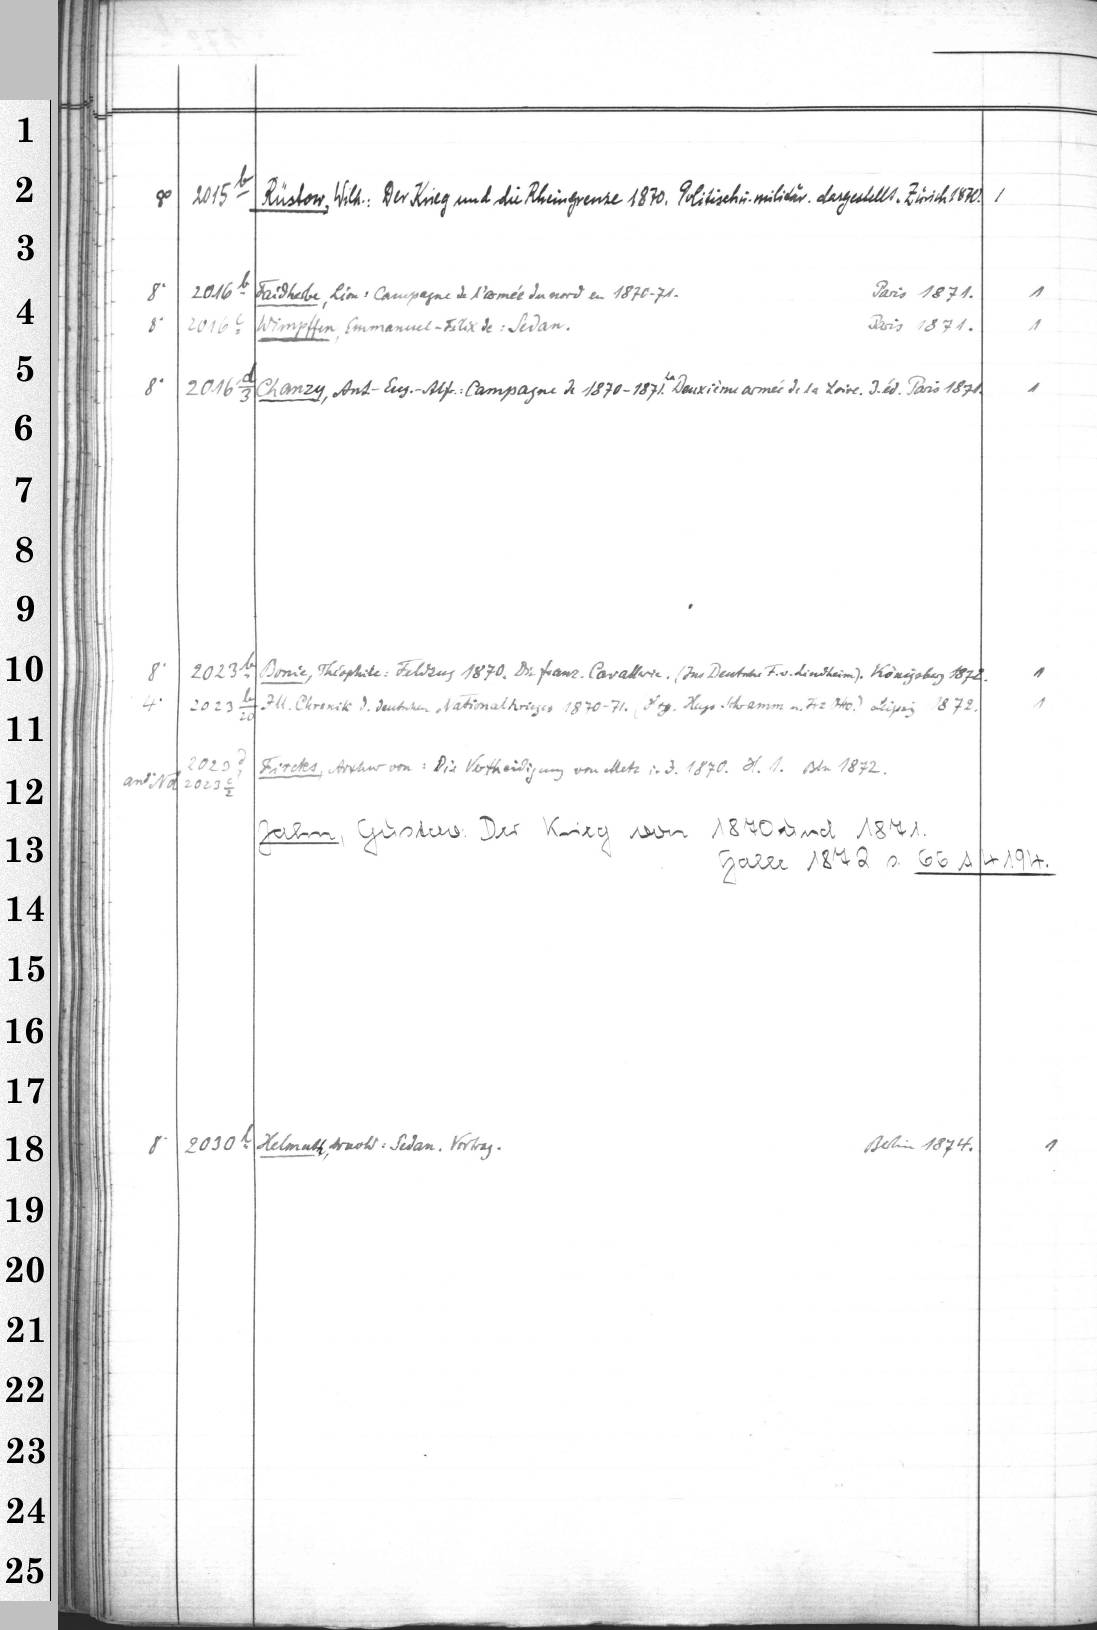 1
2
8° 2015 b Rüstow, Wilh.: Der Krieg und die Rheingrenze 1870. Politisch u. militär. dargestellt. Zürich 1870. 1
3
8° 2016 b Faidherbe, Léon: Campagne de l'armée du nord en 1870-71. Paris 1871. 1
4
8° 2016 c Wimpffen, Emmanuel-Félix de: Sedan. Paris 1871. 1
5
8° 2016 d/3 Chanzy, Ant.-Eug.-Alf.: Campagne de 1870-1871. La Deuxième armée de la Loire. 3. éd. Paris 1871. 1
6
7
8
9
10
8° 2023 b Bonie, Théophile: Feldzug 1870. Die franz. Cavallerie. (Ins Deutsche F. v. Lindheim). Königsberg 1872. 1
4° 2023 b/20 Ill. Chronik d. deutschen Nationalkrieges 1870-71. (Hrg. Hugo Schramm u. Frz Otto.) Leipzig 1872. 1
11
2023 d Fircks, Arthur von: Die Vertheidigung von Metz i. J. 1870. H. 1. Bln 1872.
2023 c/2
12
Jahn, Gustav: Der Krieg von 1870 und 1871.
13
Halle 1872 s. 66 A 4194.
14
15
16
17
18
8° 2030 b Helmuth, Arnold: Sedan. Vortrag. Berlin 1874. 1
19
20
21
22
23
24
25